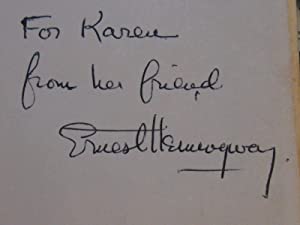 For Karen
from her friend
Ernest Hemingway